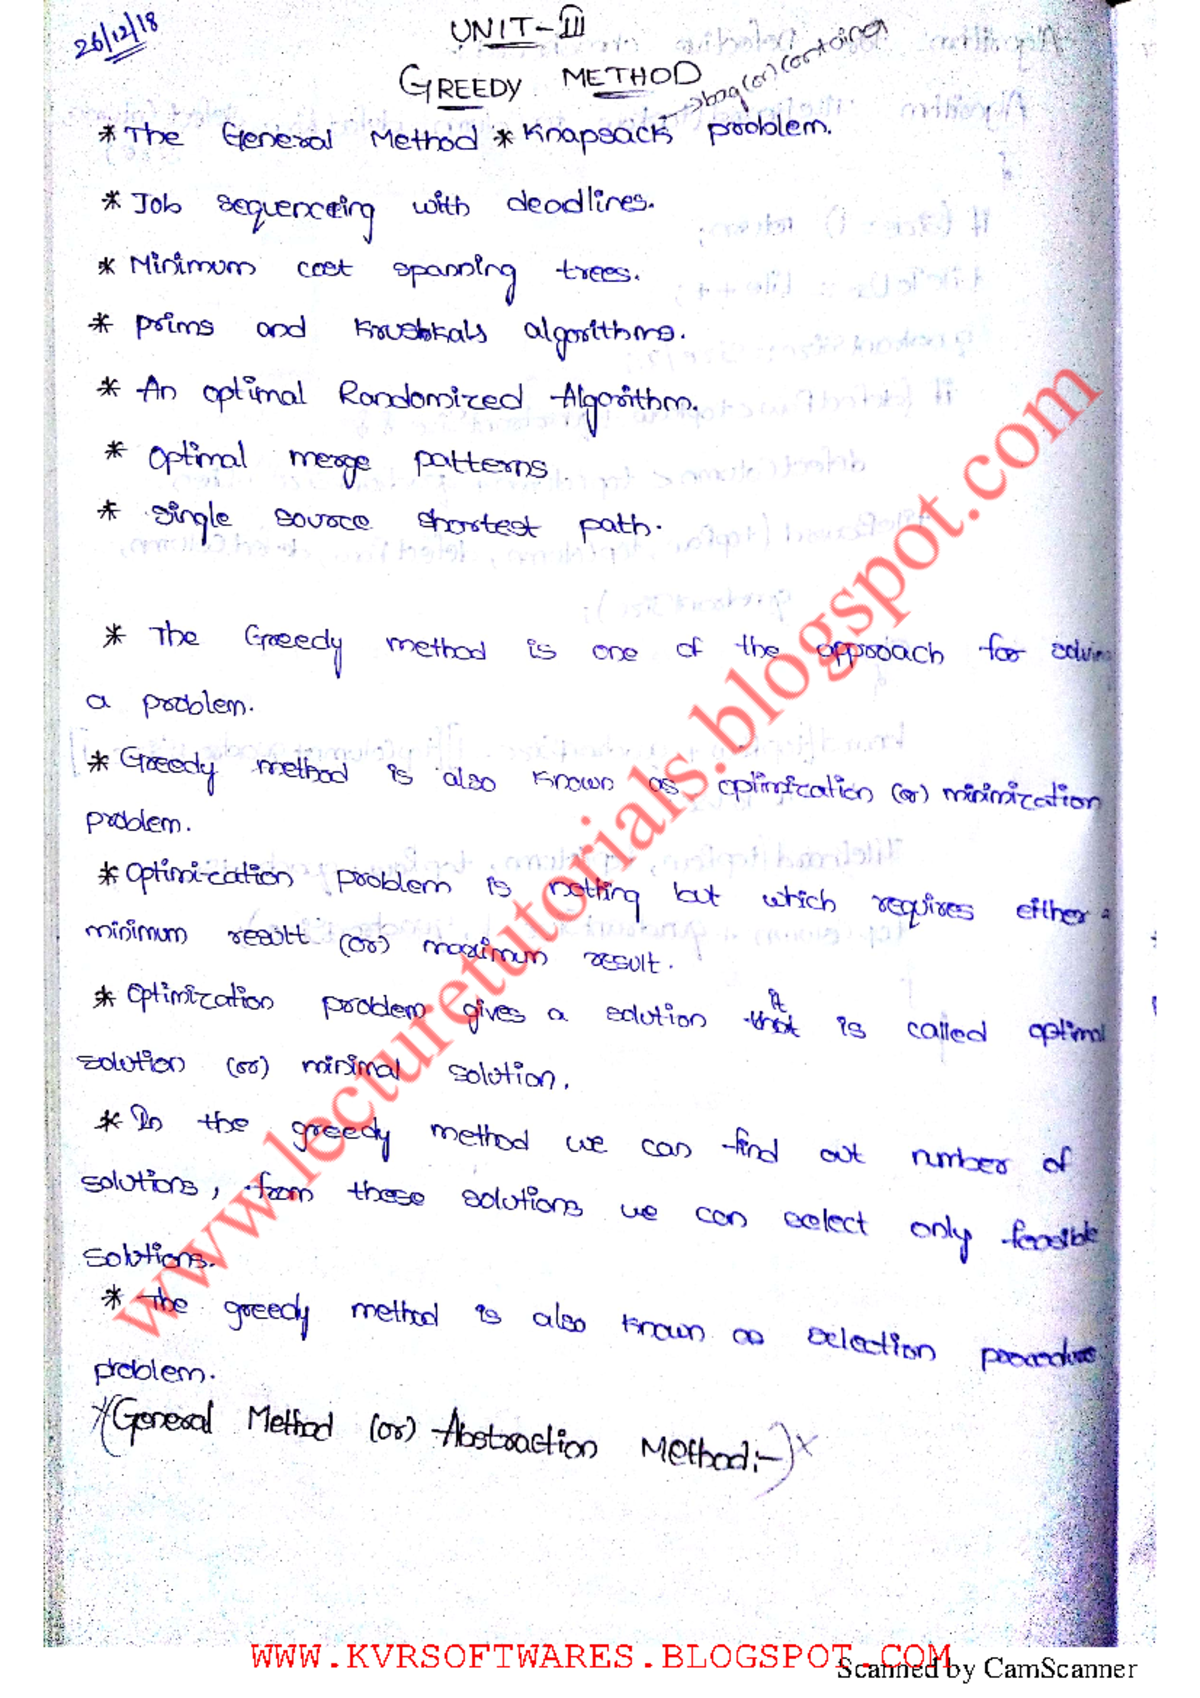 26/12/18
UNIT-III
GREEDY METHOD
→bag(or)container
*The General Method * Knapsack problem.
* Job sequenceing with deadlines.
* Minimum cost spanning trees.
* prims and Krushkals algorithms.
* An optimal Randomized Algorithm.
* Optimal merge patterns
* single source shortest path.
* The Greedy method is one of the approach for solving
a problem.
* Greedy method is also known as optimization (or) minimization
problem.
*Optimization problem is nothing but which requires either
minimum result (or) maximum result.
it
* Optimization problem gives a solution that is called optimal
solution (or) minimal solution.
* In the greedy method we can find out number of
solutions, from these solutions we can select only feasible
solutions.
* The greedy method is also known as selection procedure
problem.
*(General Method (or) Abstraction Method:-)x
www.lecturetutorials.blogspot.com
WWW.KVRSOFTWARES.BLOGSPOT.COM
Scanned by CamScanner